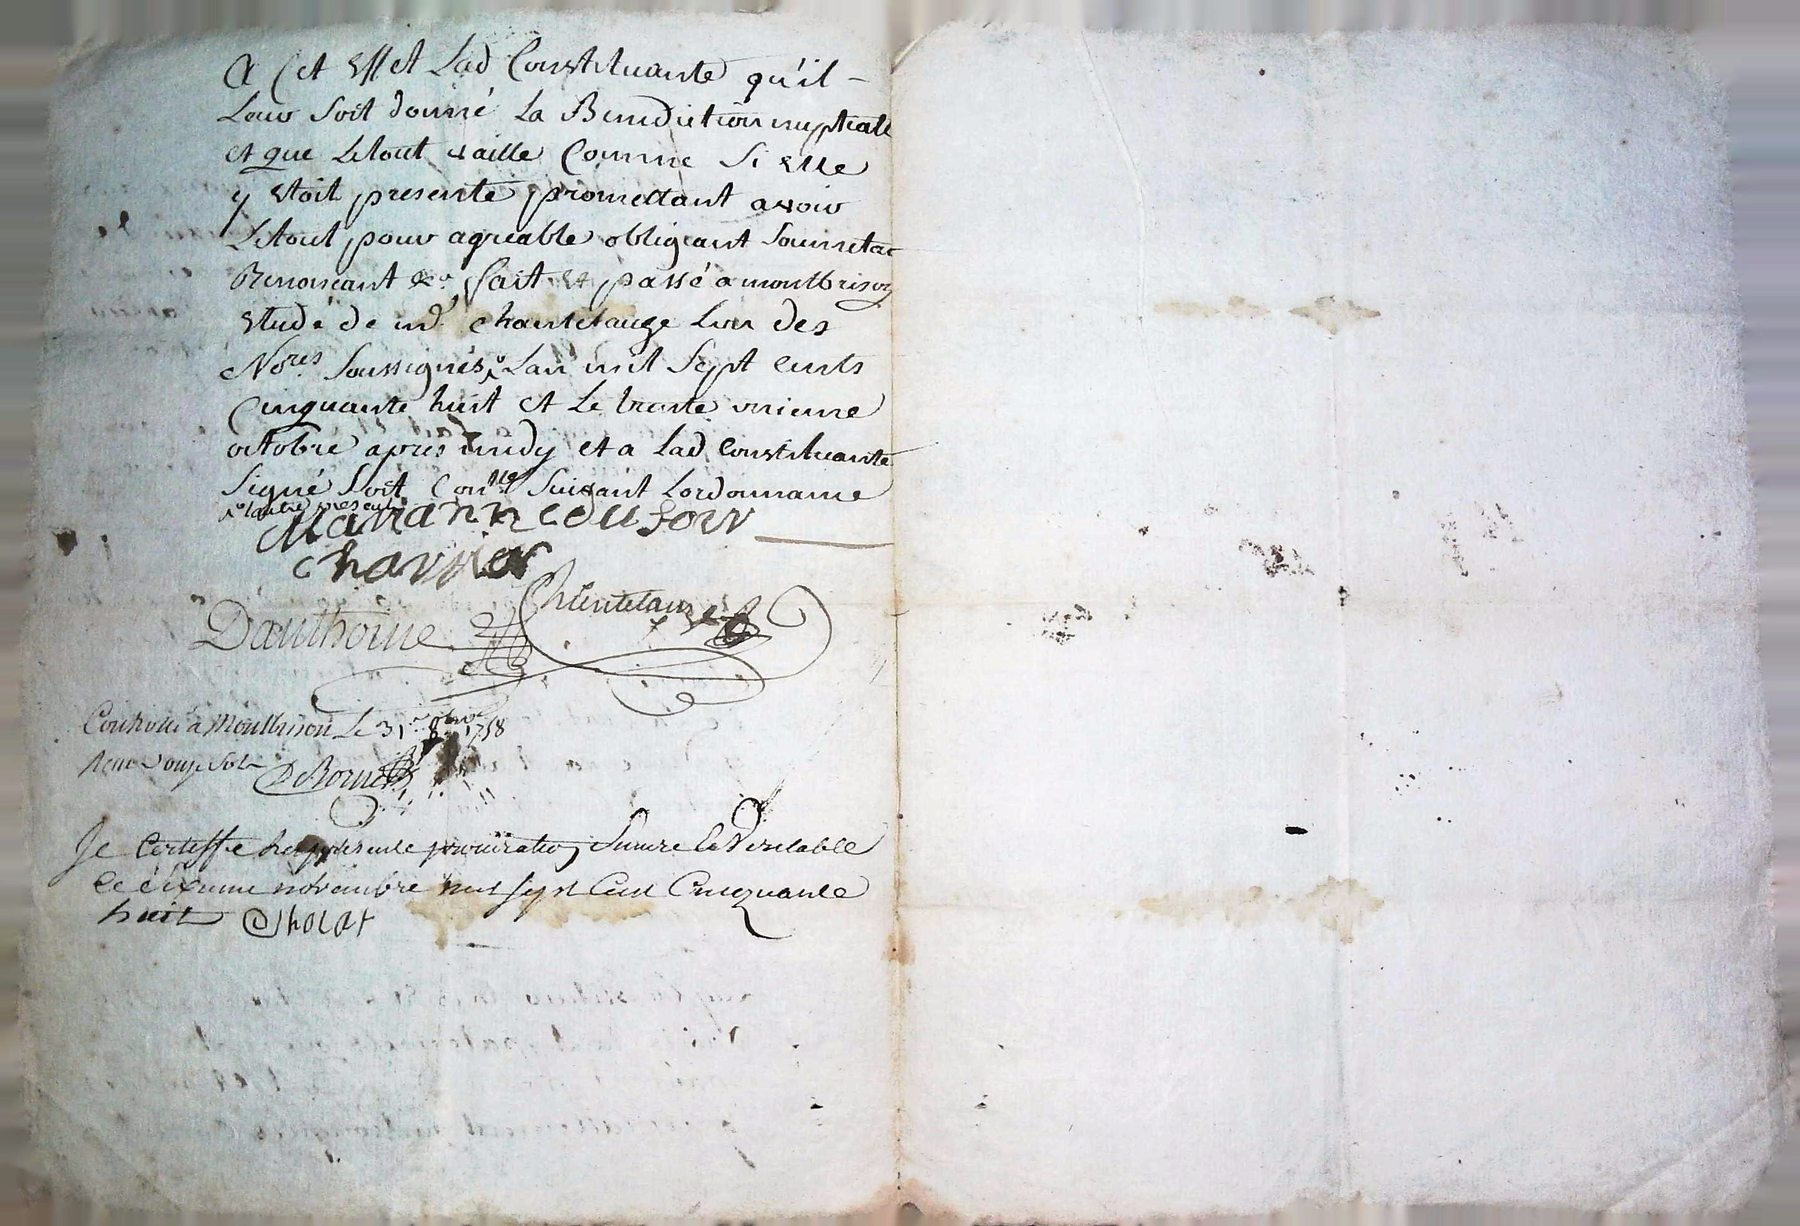 A Cet Effet Lad Constituante qu'il -
Leur soit donné La Benediction nuptiale
et que Letout vaille Comme Si Elle
y Etoit presente promettant avoir
Letout pour agreable obligeant Soumetan
Renonceant &a fait et passé a montbrison
Etude de md. chantelauze L'un des
Nores Soussignés L'an mil Sept cents
Cinquante huit et Le trente unieme
octobre apres midy et a Lad Constituante
Signé Soit Conlle Suivant Lordonnance
L'autre present
Mariann e dufour
charpier
Chantelauze
Dauthoine
Controllé a Montbrison Le 31e 8bre 1758
Reçu Sols DeBornet
Je Certiffie La presente procuration Sincere & Veritable
Ce novembre mil Sept Cent Cinquante
huit Cholat